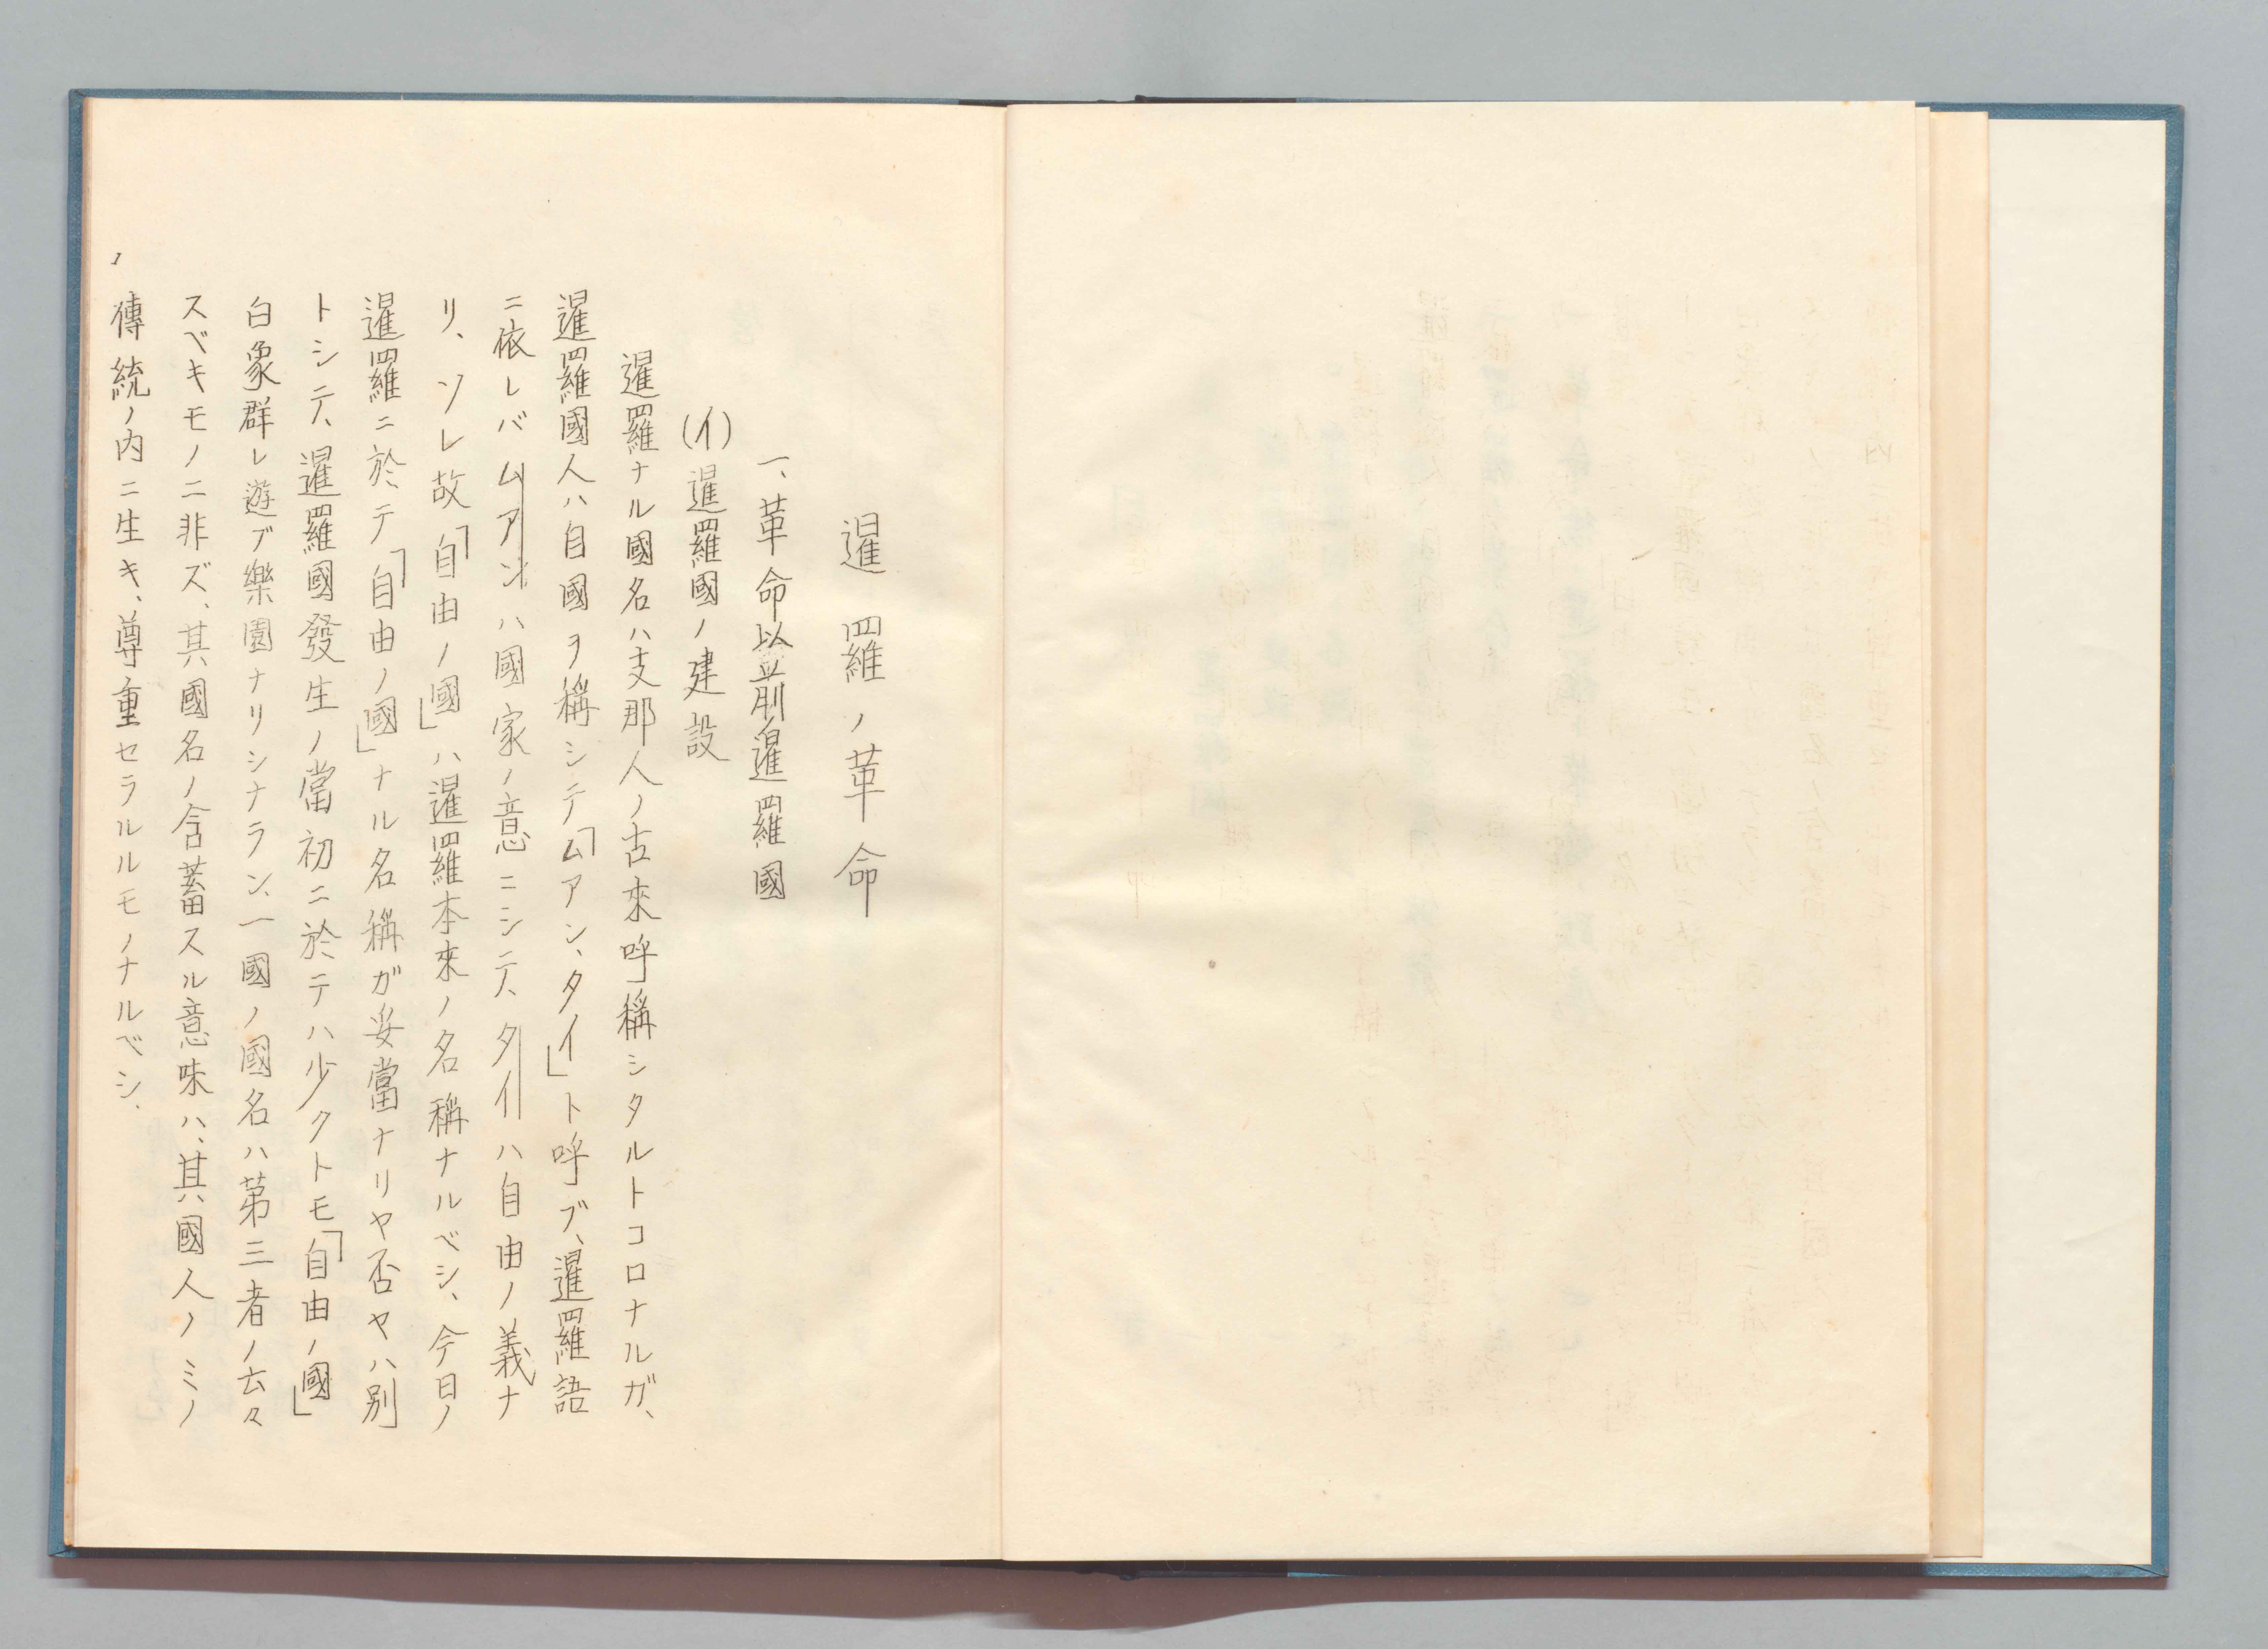 暹羅ノ革命
一、革命以前暹羅國
(イ)暹羅國ノ建設
暹羅ナル國名ハ支那人ノ古來呼稱シタルトコロナルガ、
暹羅國人ハ自國ヲ稱シテ「ムアン、タイ」ト呼ブ、暹羅語
ニ依レバムアンハ國家ノ意ニシテ、タイハ自由ノ義ナ
リ、ソレ故「自由ノ國」ハ暹羅本來ノ名稱ナルベシ、今日ノ
暹羅ニ於テ「自由ノ國」ナル名稱ガ妥當ナリヤ否ヤハ別
トシテ、暹羅國發生ノ當初ニ於テハ少クトモ「自由ノ國」
白象群レ遊ブ樂園ナリシナラン、一國ノ國名ハ第三者ノ云々
スベキモノニ非ズ、其國名ノ含蓄スル意味ハ、其國人ノミノ
傳統ノ内ニ生キ、尊重セラルルモノナルベシ、
1